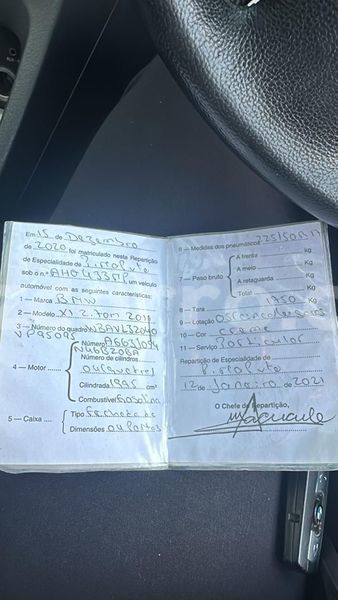 Em 15 de Dezembro
de 2020, foi matriculado nesta Repartição
de Especialidade de
sob o n.º AHO433MP, um veículo
automóvel com as seguintes características:
1 — Marca BMW
2 — Modelo X1 2.
3 — Número do quadro WBAVL32040
VP95095
4 — Motor
Número A6631094
N46B20BA
Número de cilindros
04
Cilindrada 1995 cm³
Combustível Gasolina
5 — Caixa
Tipo Fechada de
Dimensões 04 Portas
6 — Medidas dos pneumáticos 225/50R17
7 — Peso bruto
A frente Kg
A meio Kg
A retaguarda Kg
Total Kg
8 — Tara 1750 Kg
9 — Lotação 05
10 — Cor creme
11 — Serviço Particular
Repartição de Especialidade de
12 de Janeiro de 2021
O Chefe de Repartição,